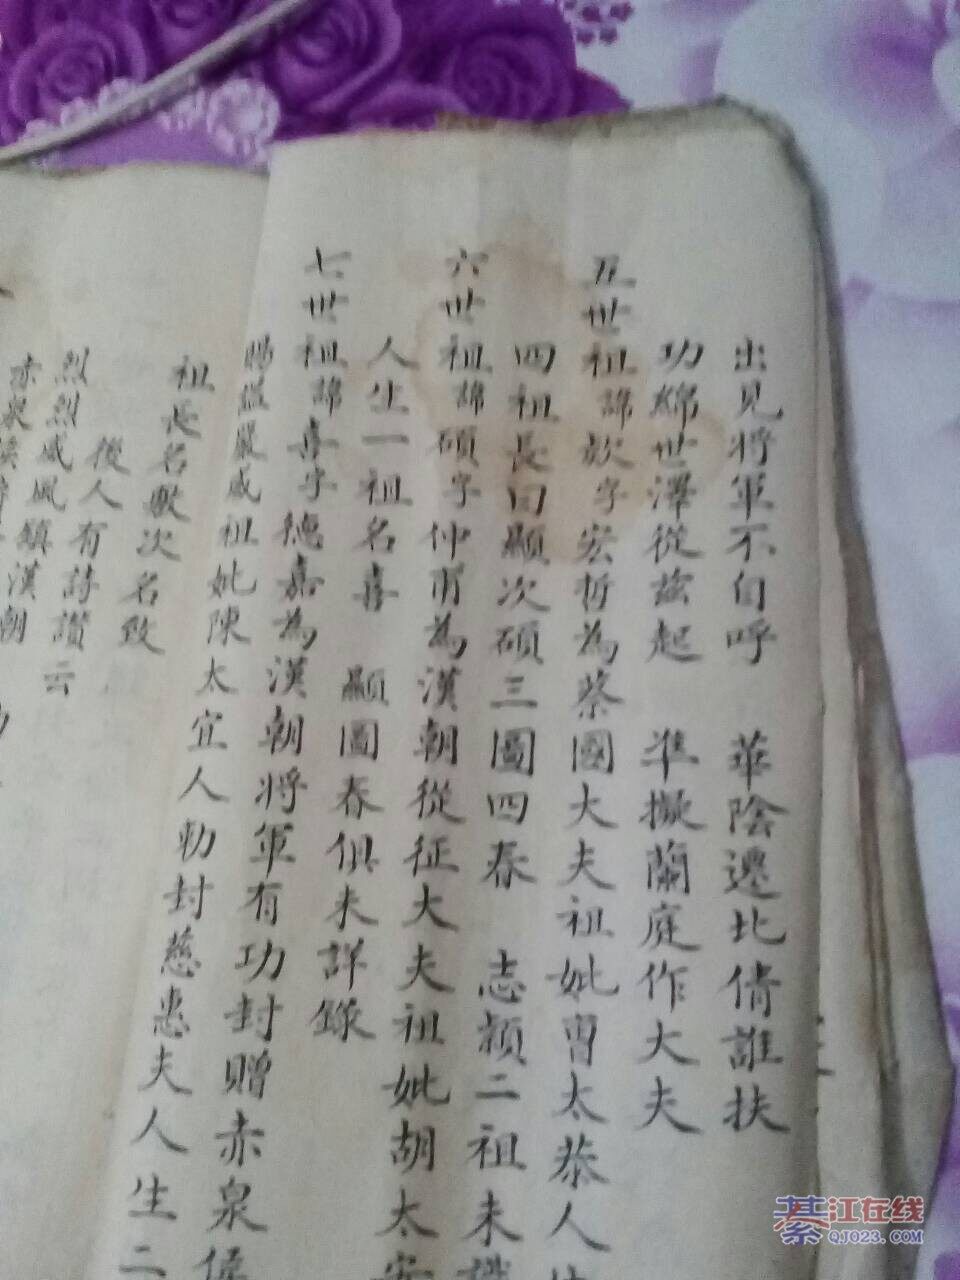 出見將軍不自呼 華陰遷比倩誰扶
功綿世澤從茲起 準擬蘭庭作大夫
五世祖諱款字宏哲為蔡國大夫祖妣曾太恭人生
四祖長曰顯次碩三圖四春 志頴二祖未
六世祖諱碩字仲甫為漢朝從征大夫祖妣胡太安
人生一祖名喜 顯圖春俱未詳錄
七世祖諱喜字德嘉為漢朝將軍有功封贈赤泉侯
賜謚嚴威祖妣陳太宜人勅封慈惠夫人生二
祖長名敷次名致
後人有詩讚云
烈烈威風鎮漢朝
赤泉侯
綦江在线
QJ023.COM